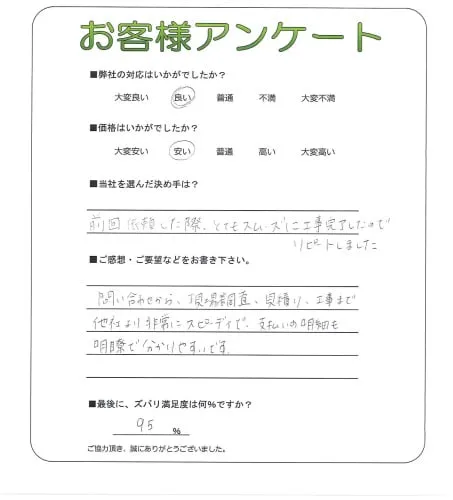 お客様アンケート
■弊社の対応はいかがでしたか？
大変良い 良い 普通 不満 大変不満
■価格はいかがでしたか？
大変安い 安い 普通 高い 大変高い
■当社を選んだ決め手は？
前回依頼した際、とてもスムーズに工事完了したので
リピートしました
■ご感想・ご要望などをお書き下さい。
問い合わせから、現場調査、見積り、工事まで
他社より非常にスピーディで、支払いの明細も
明瞭で分かりやすいです。
■最後に、ズバリ満足度は何%ですか？
95 %
ご協力頂き、誠にありがとうございました。